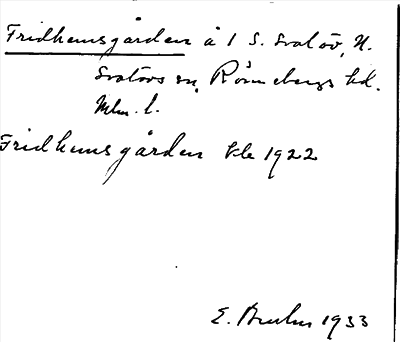 Fridhemsgården å 1 S. Svalöv, N.
Svalövs sn, Rönnebergs hd.
Mlm. l.
Fridhemsgården kle 1922
E. Bruhn 1933